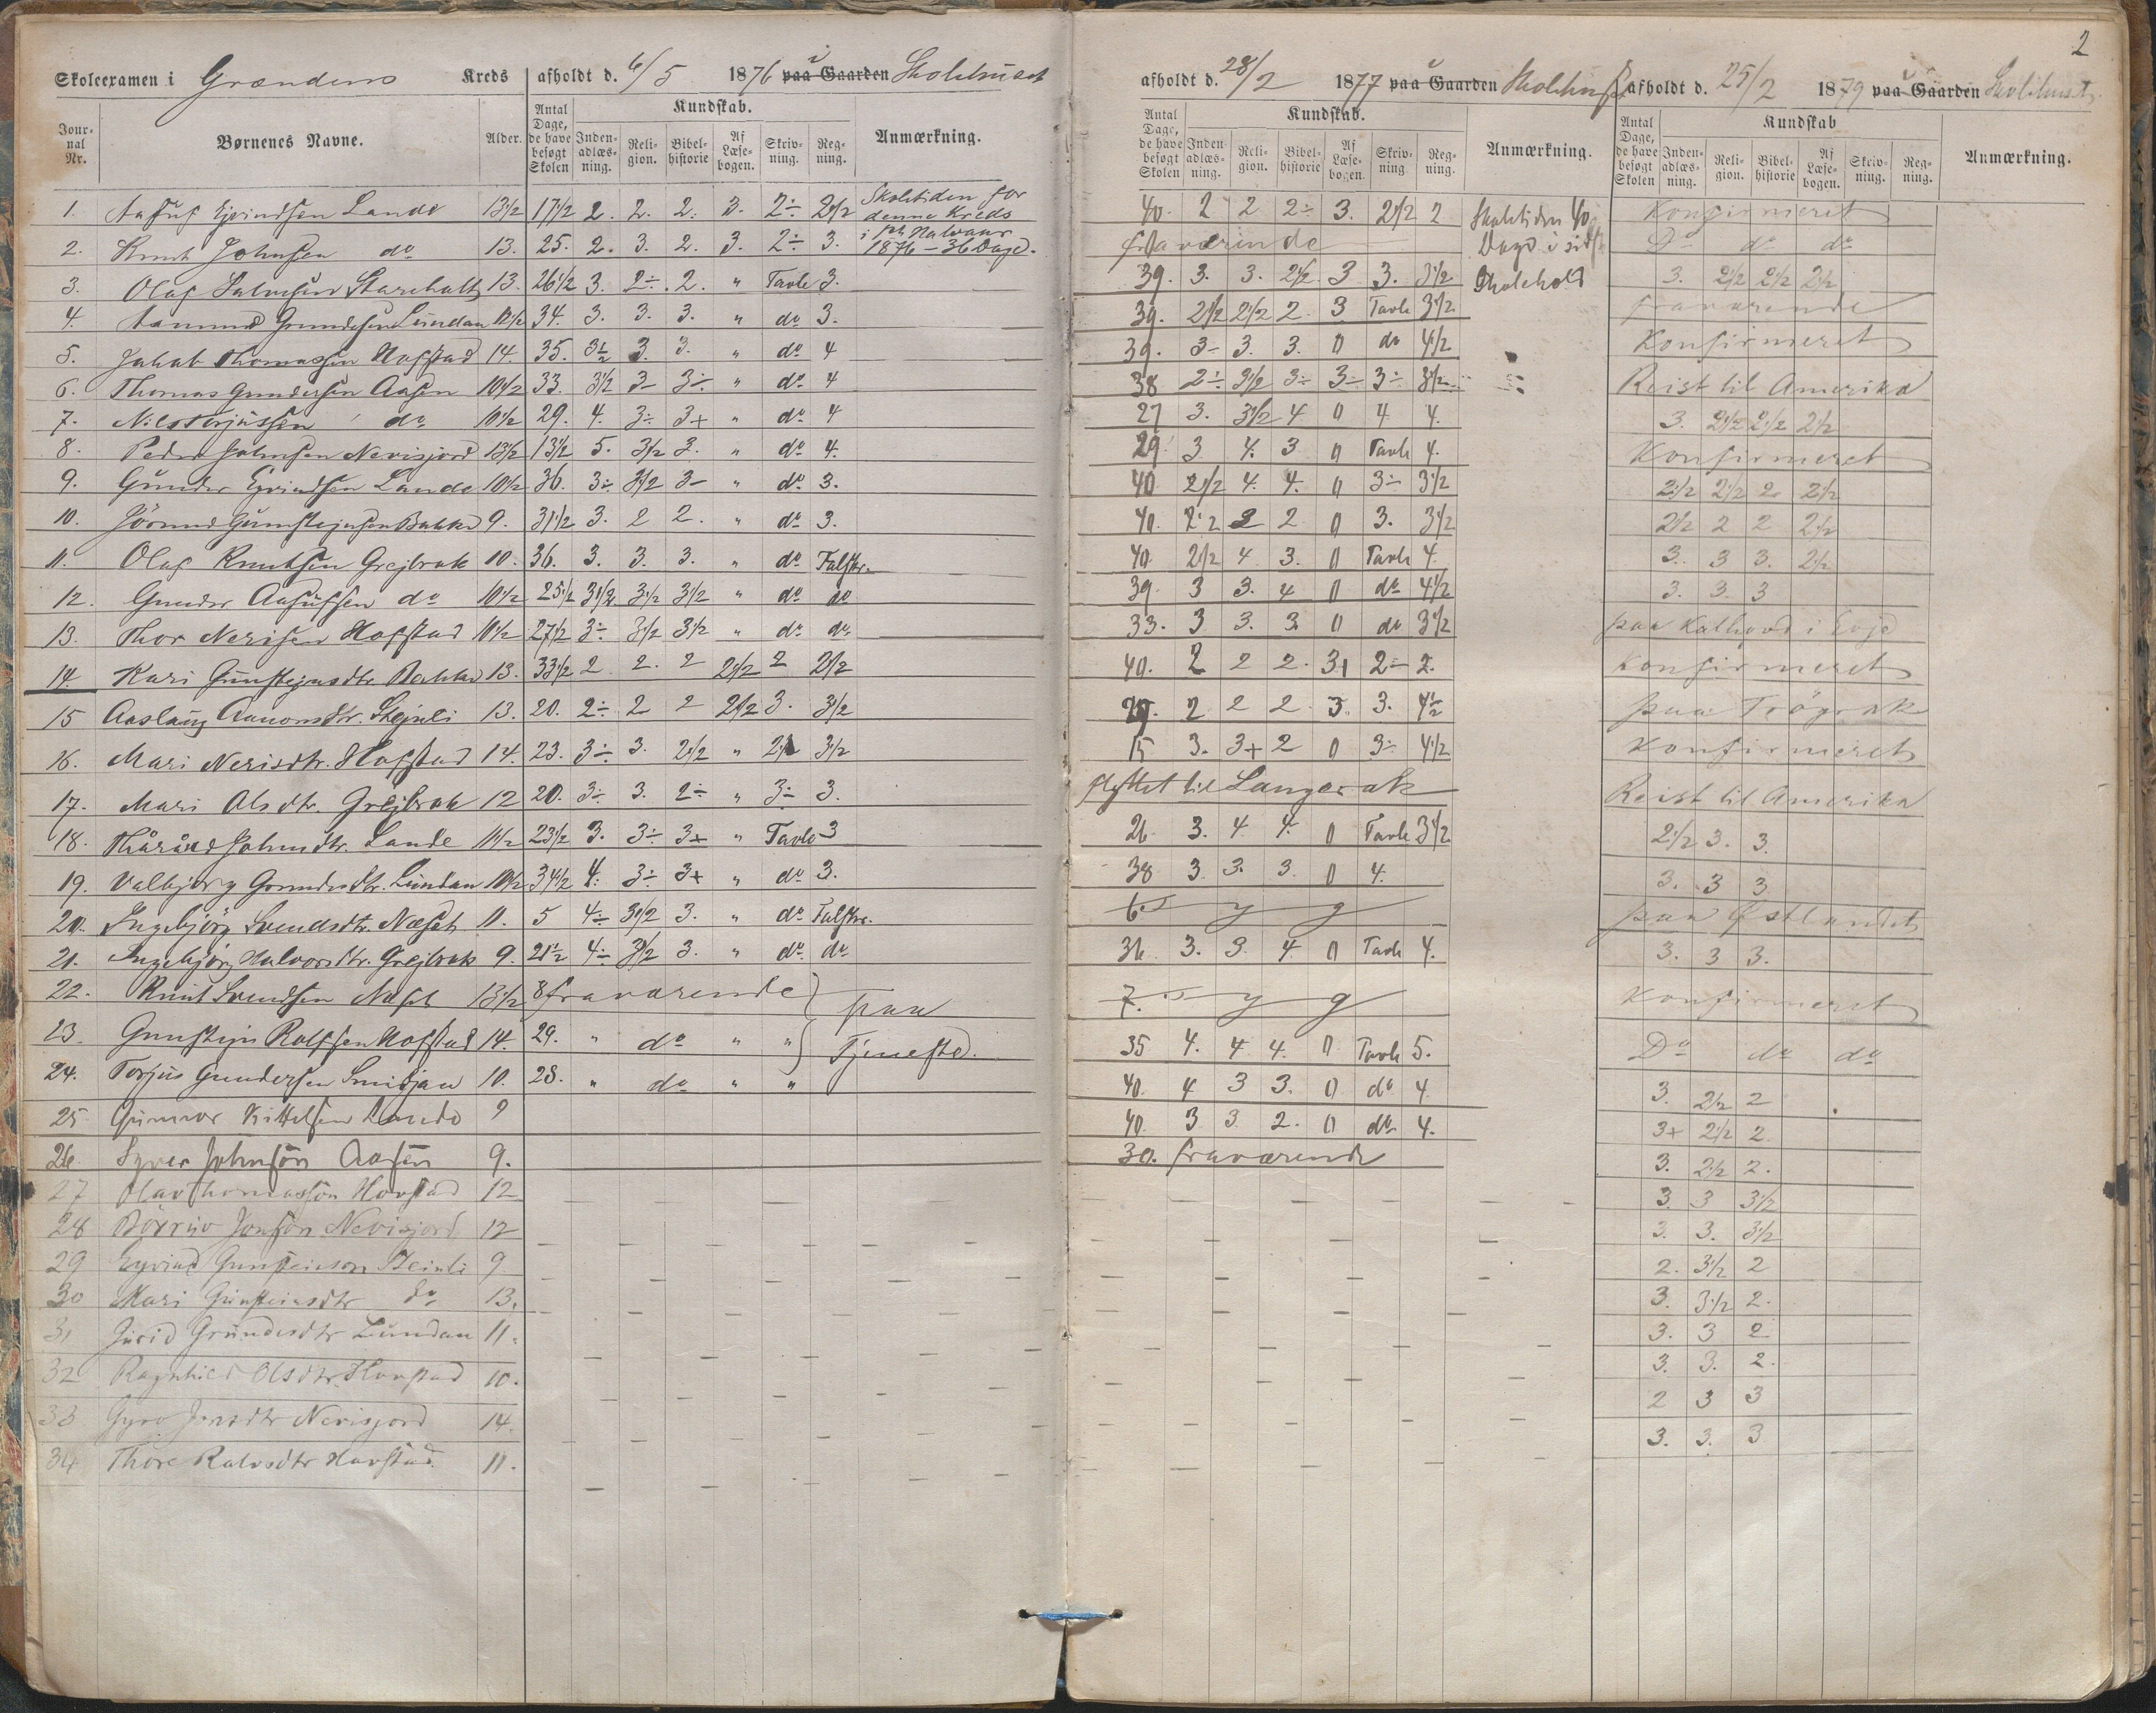 2
Skoleexamen i Grændens Kreds afholdt d. 6/5 1876 paa Gaarden i Skolehuset
Journal Nr. Børnenes Navne. Alder. Antal Dage, de have besøgt Skolen Kundskab. Indenadlæsning. Religion. Bibelhistorie Af Læsebogen. Skrivning. Regning. Anmærkning.
1. Aasuf Ejvindsen Lande 13 1/2 17 1/2 2. 2. 2. 3. 2÷ 2 1/2 Skoletiden for denne Kreds
2. Knut Johnsen do 13. 25. 2. 3. 2. 3. 2÷ 3. i 1ste Halvaar 1876 – 36 Dage.
3. Olaf Salvesen Stareholt 13. 26 1/2 3. 2÷ 2. " Tavle 3.
4. Aamund Grundesen Lundan 12 1/2 34. 3. 3. 3. " do 3.
5. Jakob Thomassen Hofstad 14. 35. 3 1/2 3. 3. " do 4
6. Thomas Gundersen Aasen 10 1/2 33. 3 1/2 3- 3÷ " do 4
7. Nils Terjussen do 10 1/2 29. 4. 3÷ 3+ " do 4
8. Peder Johnsen Nevisjord 13 1/2 13 1/2 5. 3 1/2 3. " do 4.
9. Gunder Ejvindsen Lande 10 1/2 36. 3÷ 3 1/2 3- " do 3.
10. Jörund Gunstejnsen Bakke 9. 31 1/2 3. 2 2. " do 3.
11. Olaf Knutsen Grejbrok 10. 36. 3. 3. 3. " do Talskr.
12. Gunder Aasufsen do 10 1/2 25 1/2 3 1/2 3 1/2 3 1/2 " do do
13. Thor Nerisen Hofstad 10 1/2 27 1/2 3÷ 3 1/2 3 1/2 " do do
14. Kari Gunstejnsdtr. Bakke 13. 33 1/2 2 2. 2 2 1/2 2 2 1/2
15 Aaslaug Aanonsdtr. Stejnli 13. 20. 2÷ 2 2 2 1/2 3. 3 1/2
16. Mari Nerisdtr. Hofstad 14. 23. 3÷ 3. 2 1/2 " 2 1/2 3 1/2
17. Mari Olsdtr. Grejbrok 12 20. 3÷ 3. 2÷ " 3÷ 3.
18. Thåråd Johnsdtr. Lande 11 1/2 23 1/2 3. 3÷ 3+ " Tavle 3
19. Valbjörg Grundesdtr. Lundan 10 1/2 34 1/2 4. 3÷ 3+ " do 3.
20. Ingebjörg Svendsdtr. Næset 11. 5 4÷ 3 1/2 3. " do Talskr.
21. Ingebjörg Halvorsdtr. Grejbrok 9. 21 1/2 4÷ 3 1/2 3. " do do
22. Knut Svendsen Næset 13 1/2 8 fraværende paa
23. Gunstejn Rolfsen Hofstad 14. 29. " do " " Tjeneste.
24. Torjus Gundersen Smidjan 10. 28. " do " "
25 Gunnar Kittelsen Lande 9
26. Syver Johnsön Aasen 9.
27 Olav Thomassön Hovstad 12
28 Jonsön Nevisjord 12
29 Eyvind Gunsteinson Steinli 9
30 Mari Gunsteinsdtr do 13.
31 Jurid Grundesdtr Lundan 11.
32 Ragnhild Olsdtr. Hovstad 10.
33 Gyro Jonsdtr Nevisjord 14.
34 Thore Ralvsdtr Hovstad 11.
afholdt d. 28/2 1877 paa Gaarden i Skolehuset
Antal Dage, de have besøgt Skolen Kundskab. Indenadlæsning. Religion. Bibelhistorie Af Læsebogen. Skrivning Regning. Anmærkning.
40. 2 2 2÷ 3. 2 1/2 2 Skoletiden 40
fraværende Dage i
39. 3. 3. 2 1/2 3 3. 3 1/2 Skolehold
39. 2 1/2 2 1/2 2 3 Tavle 3 1/2
39. 3- 3. 3. 0 do 4 1/2
38 2÷ 3 1/2 3÷ 3÷ 3÷ 3 1/2
27 3. 3 1/2 4 0 4 4.
29 3 4. 3 0 Tavle 4.
40 2 1/2 4. 4. 0 3÷ 3 1/2
40. 2 1/2 2 2 0 3. 3 1/2
40. 2 1/2 4 3. 0 Tavle 4
39. 3 3. 4 0 do 4 1/2
33. 3 3. 3 0 do 3 1/2
40. 2 2 2. 3+ 2÷ 2.
29. 2 2 2. 3. 3. 4 1/2
15 3. 3+ 2 0 3÷ 4 1/2
flyttet til Langerak
26 3. 4 4. 0 Tavle 3 1/2
38 3 3. 3. 0 4.
6. s y g
36 3. 3. 4 0 Tavle 4.
7. s y g
35 4. 4 4. 0 Tavle 5.
40. 4 3 3. 0 do 4
40. 3 3 2. 0 do 4.
30. fraværende
afholdt d. 25/2 1879 paa Gaarden i Skolehuset
Antal Dage, de have besøgt Skolen Kundskab Indenadlæsning. Religion. Bibelhistorie Af Læsebogen. Skrivning. Regning. Anmærkning.
Konfirmeret
Do do do
3. 2 1/2 2 1/2 2 1/2
fraværende
Konfirmeret
Reist til Amerika
3. 2 1/2 2 1/2 2 1/2
Konfirmeret
2 1/2 2 1/2 2. 2 1/2
2 1/2 2 2 2 1/2
3. 3 3. 2 1/2
3. 3. 3
paa i Evje
Konfirmeret
paa
Konfirmeret
Reist til Amerika
2 1/2 3. 3.
3. 3 3
paa Østlandet
3. 3 3.
Konfirmeret
Do do do
3. 2 1/2 2
3+ 2 1/2 2.
3. 2 1/2 2.
3. 3 3 1/2
3. 3. 3 1/2
2. 3 1/2 2
3. 3 1/2 2.
3. 3 2
3. 3. 2.
2 3 3
3. 3. 3